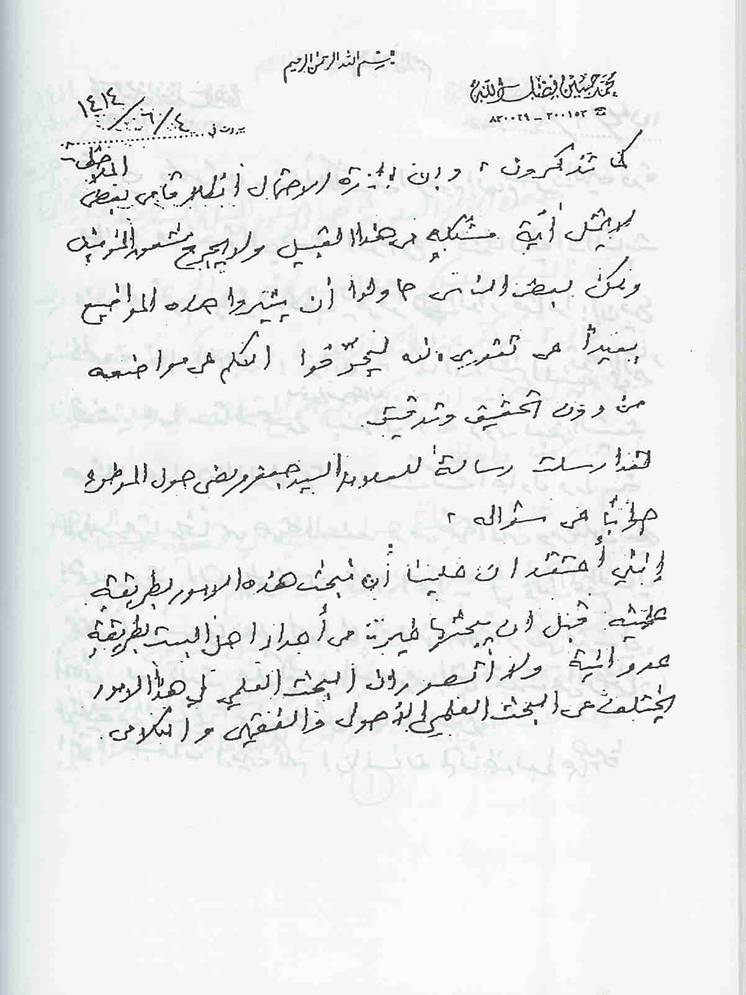 بسم الله الرحمن الرحيم
محمد حسين فضل الله
☎ ٣٠٠١٥٣ - ٨٣٠٠٢٩
بيروت في ٤ / ٦ / ١٤١٤
كما تذكرون، وإن إثارة الاحتمال انطلاقا من بعض الملاحظات
لا يمثل أية مشكلة من هذا القبيل ولا يجرح شعور المؤمنين
ولكن بعض الناس حاولوا أن يثيروا هذه المواضيع
بعيداً عن تقوى الله ليحرّفوا الكلم عن مواضعه
من دون تحقيق وتدقيق.
لقد ارسلت رسالة للعلامة السيد جعفر مرتضى حول الموضوع
جواباً عن سؤاله،
إنني أعتقد ان علينا أن نبحث هذه الامور بطريقة
علمية قبل ان يبحثها غيرنا من أعداء اهل البيت بطريقة
عدوانية ولا أتصور ان البحث العلمي في هذا الامور
يختلف عن البحث العلمي الاصولي والفقهي والكلامي.